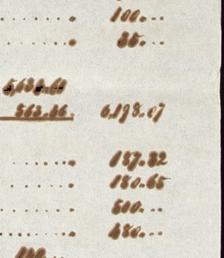 100...
35...
5,634.61
563.46 6,198.07
187.32
180.65
500...
480...